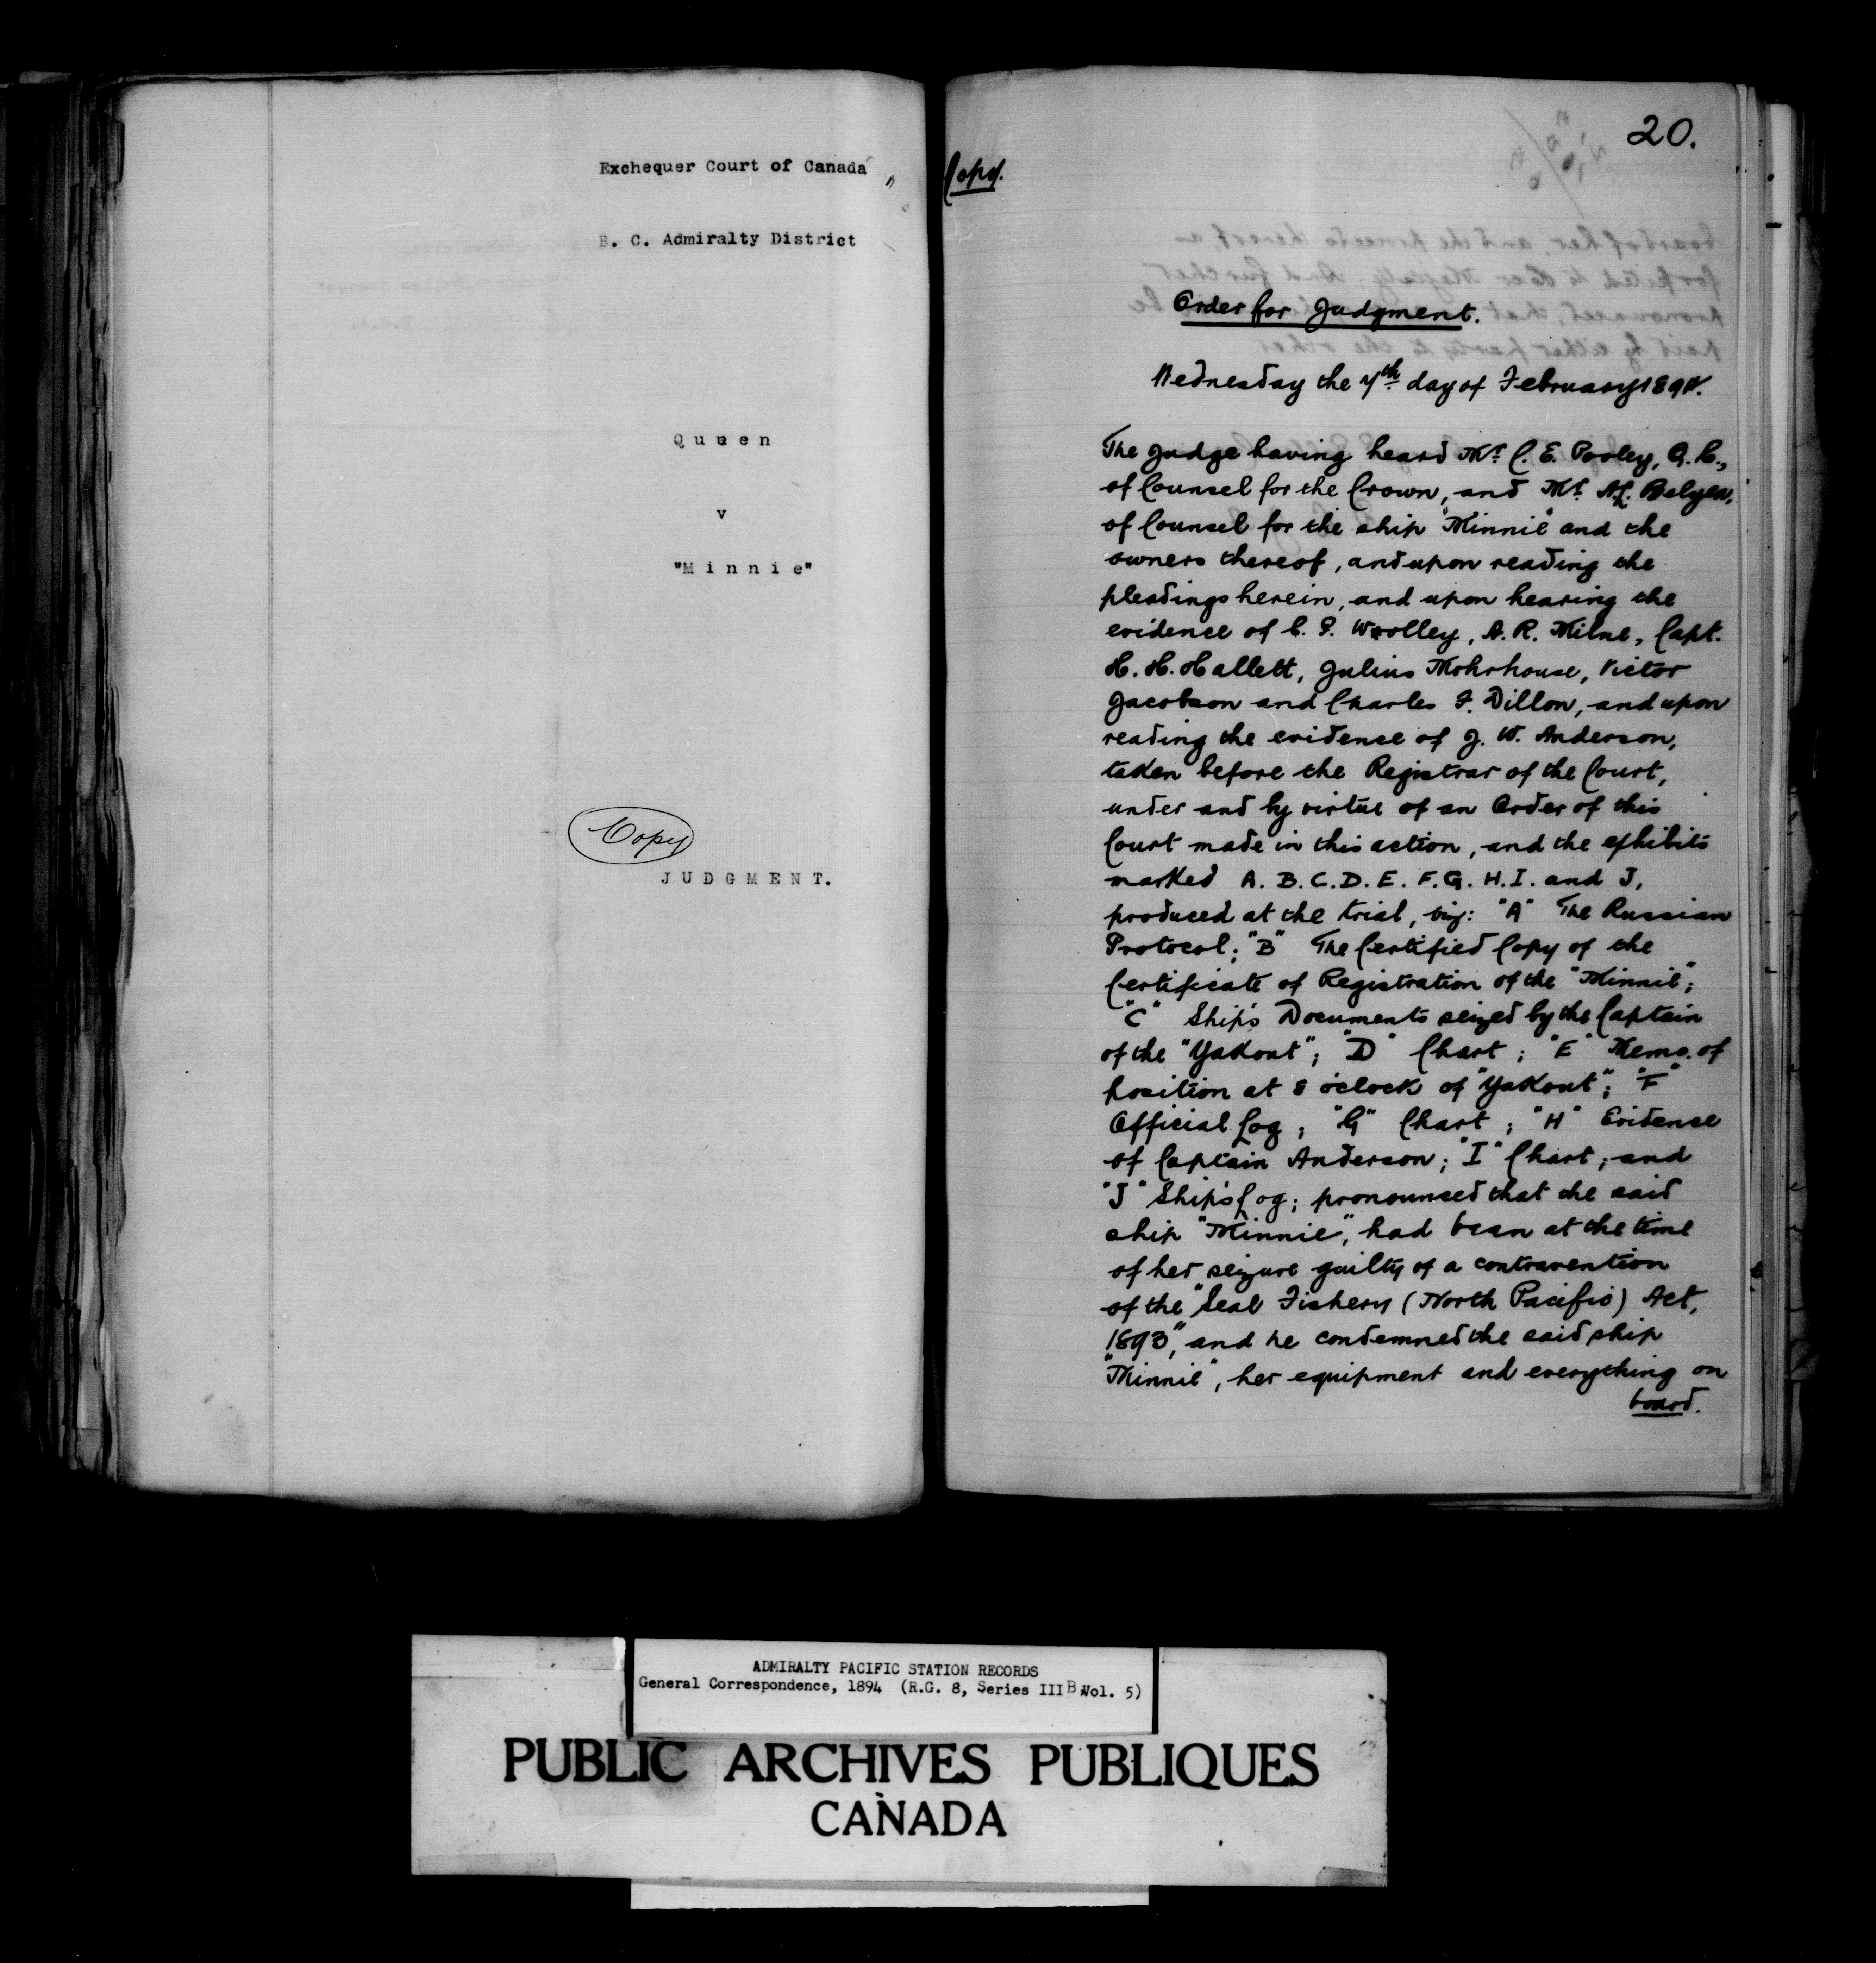 Exchequer Court of Canada
B. C. Admiralty District
Queen
v
"Minnie"
Copy
JUDGMENT.
20.
Copy.
Order for Judgment.
Wednesday the 7th day of February 1894.
The Judge having heard Mr. C. E. Pooley, Q.C.,
of Counsel for the Crown, and Mr. A.L. Belyea,
of Counsel for the ship "Minnie" and the
owners thereof, and upon reading the
pleadings herein, and upon hearing the
evidence of C. S. Woolley, A. R. Milne, Capt.
H. H. Hallett, Julius Mohrhouse, Victor
Jacobson and Charles F. Dillon, and upon
reading the evidence of J. W. Anderson,
taken before the Registrar of the Court,
under and by virtue of an Order of this
Court made in this action, and the exhibits
marked A. B. C. D. E. F. G. H. I. and J,
produced at the trial, viz: "A" The Russian
Protocol; "B" The Certified Copy of the
Certificate of Registration of the "Minnie";
"C" Ship's Documents seized by the Captain
of the "Yakout"; "D" Chart; "E" Memo. of
position at 8 o'clock of "Yakout"; "F"
Official Log; "G" Chart; "H" Evidence
of Captain Anderson; "I" Chart; and
"J" Ship's Log; pronounced that the said
ship "Minnie", had been at the time
of her seizure guilty of a contravention
of the "Seal Fishery (North Pacific) Act,
1893", and he condemned the said ship
"Minnie", her equipment and everything on
board.
ADMIRALTY PACIFIC STATION RECORDS
General Correspondence, 1894 (R.G. 8, Series III B Vol. 5)
PUBLIC ARCHIVES PUBLIQUES
CANADA